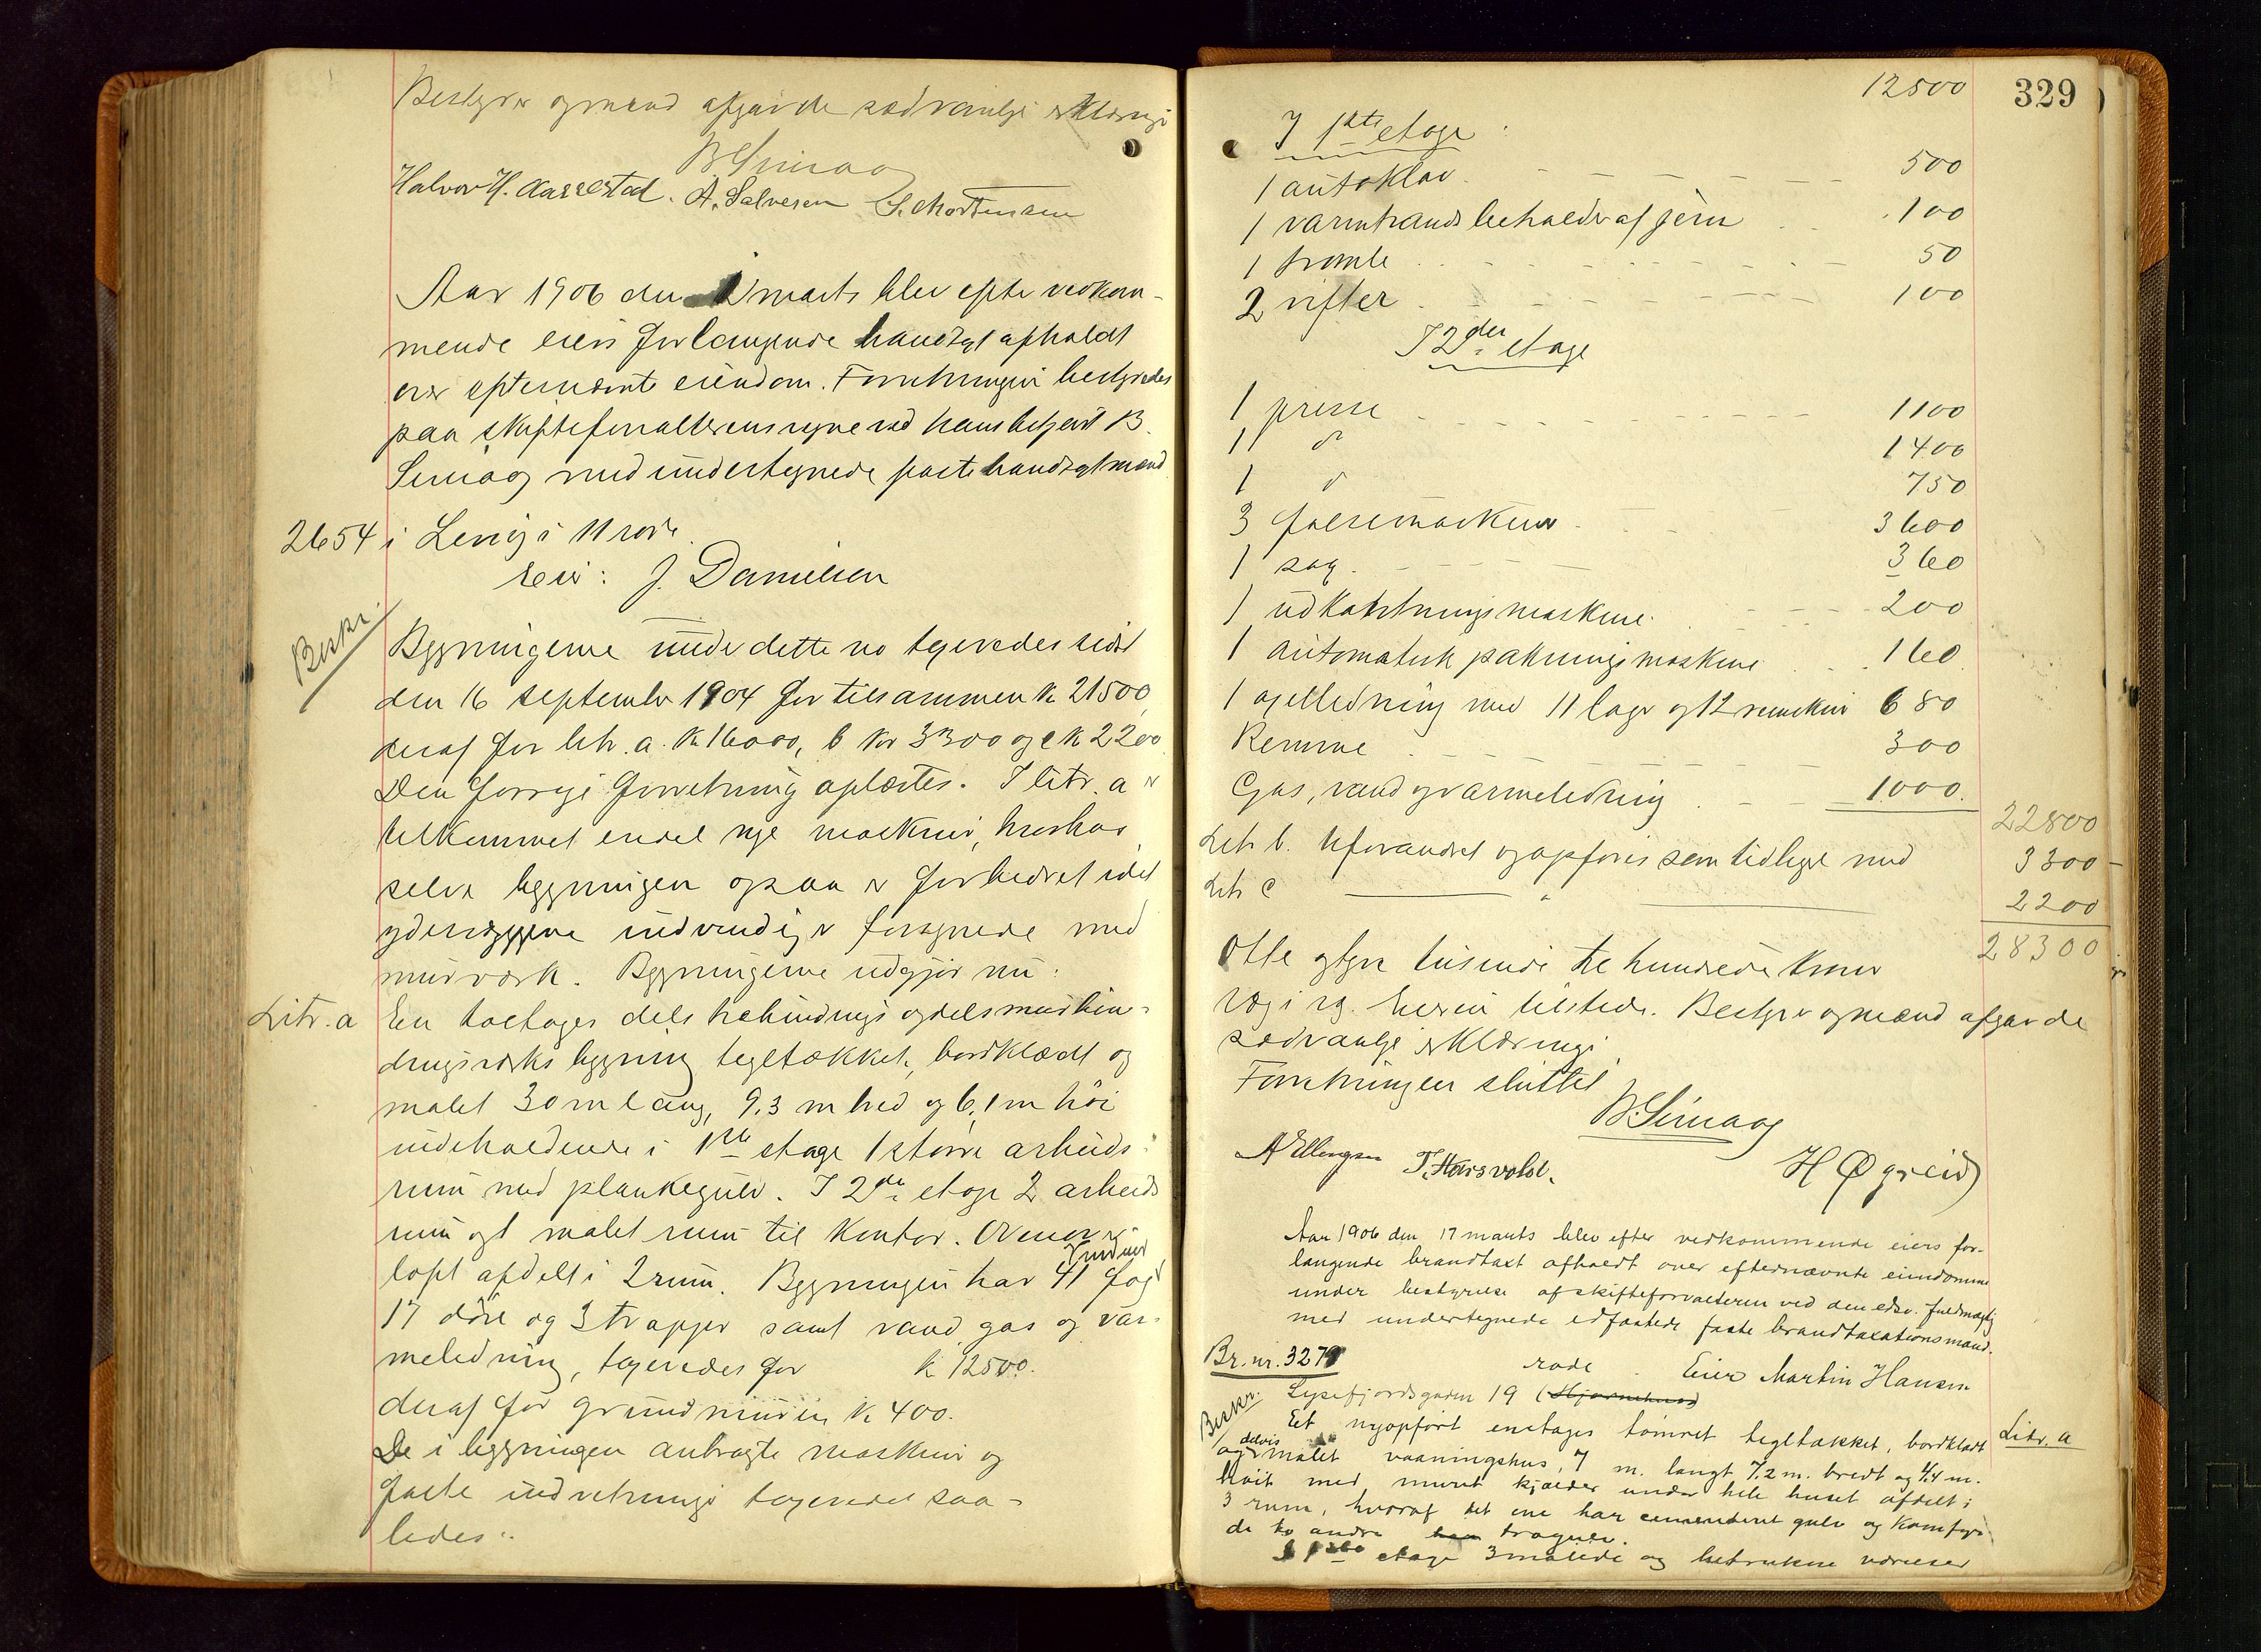 Bestyrer og mænd afgav de sædvanlige erklæringer
B Simaas
Halvor H. Aarrestad. A. Salvesen S. Mortensen
Aar 1906 den marts blev efter vedkom-
mende eiers forlangende brandtaxt afholdt
over efternævnte eiendom. Forretningen bestyredes
paa skifteforvalterens vegne ved hans betjent B.
Simaas med undertegnede faste brandtaxtmænd
2654 i Lervig i 11 rode.
Eier: J. Danielsen
Beskr.
Bygningerne under dette no taxeredes sidst
den 16 september 1904 for tilsammen kr 21500,
deraf for litr. a. kr 16000, b kr 3300 og c kr 2200
Den forrige forretning oplæstes. I litr. a er
tilkommet endel nye maskiner, hvorhos
selve bygningen ogsaa er forbedret idet
ydervæggene indvendig er forsynede med
murværk. Bygningerne udgjør nu:
Litr. a En toetages dels bebindings og dels murbin-
dingsværks bygning tegltækket, bordklædt og
malet 30 m lang, 9,3 m bred og 6,1 m høi
indeholdende i 1ste etage 1 større arbeids-
rum med plankegulv. I 2den etage 2 arbeids
rum og 1 malet rum til kontor. Ovenover
loft afdelt i 2 rum. Bygningen har 41 fag vinduer
17 døre og 3 trapper samt vand gas og var-
meledning, taxeredes for kr 12500.
deraf for grundmuren kr 400.
De i bygningen anbragte maskiner og
faste indretninger taxeredes saa-
ledes:
329
12500
I 1ste etage:
1 autoklav 500
1 varmtvandsbeholder af jern 100
1 tromle 50
2 vifter 100
I 2den etage
1 presse 1100
1 do 1400
1 do 750
3 falsemaskiner 3600
1 sag 360
1 udkantningsmaskine 200
1 automatisk pakningsmaskine 160
1 axelledning med 11 lager og 12 remskiver 680
Remme 300
Gas, vand og varmeledning 1000.
22800
Litr b. Uforandret og opføres som tidligere med 3300
Litr c " 2200
28300
Otte og tyve tusende tre hundrede kroner
Eieren tilstede. Bestyrer og mænd afgav de
sædvanlige erklæringer.
Forretningen sluttet
B. Simaas
A Ellingsen T. Hausvold. H Øgreid
Aar 1906 den 17 marts blev efter vedkommende eiers for-
langende brandtaxt afholdt over efternævnte eiendomme
under bestyrelse af skifteforvalteren ved den edsv. fuldmægtig
med undertegnede edfæstede faste brandtaxationsmænd.
Br. nr. 3279 rode Eier Martin Hansen
Lysefjordsgaden 19 (Hjørnehus)
Beskr. Et nyopført enetages tømret tegltækket, bordklædt Litr. a
og delvis malet vaaningshus, 7 m. langt 7.2 m. bredt og 4.4 m.
høit med muret kjælder under hele huset afdelt i
3 rum, hvoraf det ene har cementeret gulv og komfyr
de to andre har trægulv.
I 1ste etage 3 malede og betrukne værelser